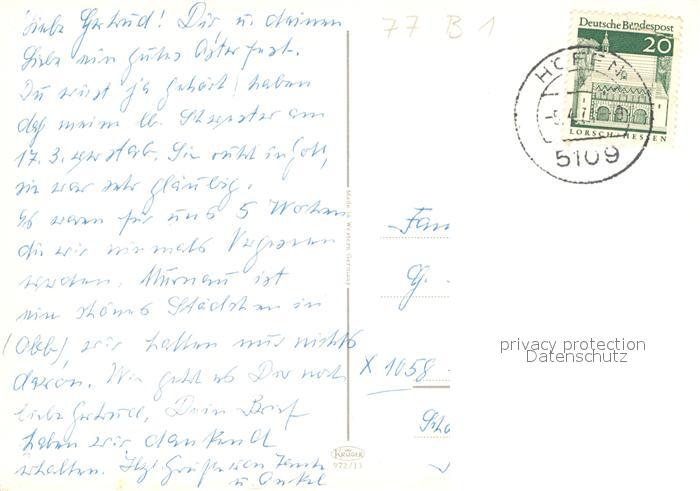 Liebe Gertrud! Dir u. deinen
Liebe ein gutes Osterfest.
Du wirst ja gehört haben
daß meine lb. Schwester am
17. 3. verstarb. Sie ruht in Gott,
sie war sehr gläubig.
Es waren für uns 5 Wochen
die wir niemals vergessen
werden. Murnau ist
ein schönes Städtchen in
(Obb), wir hatten nur nichts
davon. Wie geht es Dir noch
liebe Gertrud, Dein Brief
haben wir dankend
erhalten. Hzl Grüße von Tante
u. Onkel
77 B 1
Deutsche Bundespost
20
LORSCH/HESSEN
5109
Made in Western Germany
Fam
G.
X 1058
privacy protection
Datenschutz
KRÜGER
972/13